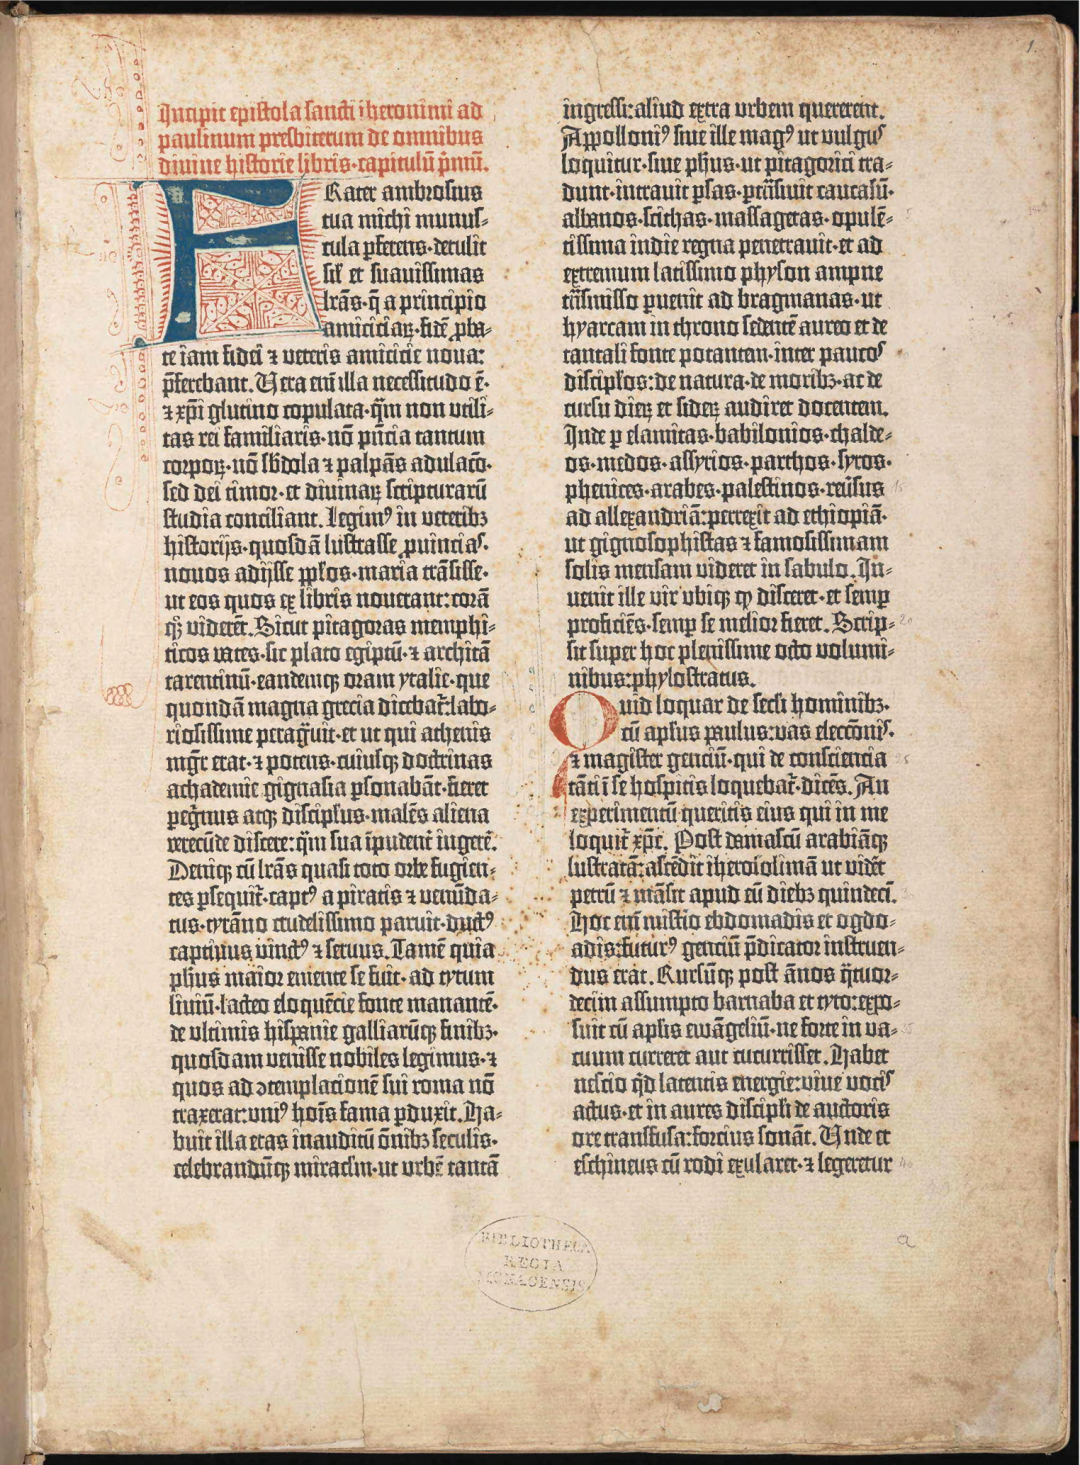 Incipit epistola sancti iheronimi ad
paulinum presbiterum de omnibus
divine historie libris·capitulū p̄mū.
FRater ambrosius
tua michi munus-
cula ꝑferens·detulit
sil̄ et suavissimas
lr̄as·q̄ a principio
amiciciaꝝ·fidē ꝓba-
te iam fidei ⁊ veteris amicicie nova:
p̄ferebant. Vera eni̅ illa necessitudo ē·
⁊ xp̄i glutino copulata·q̄m non utili-
tas rei familiaris·nō p̄ncia tantum
corpoꝝ·nō sb̄dola ⁊ palpās adulacō·
sed dei timor·et divinaꝝ scripturarū
studia conciliant. Legimꝰ in veteribꝫ
historijs·quosdā lustrasse ꝓuīcias·
novos adijsse ppl̄os·maria trāsisse·
ut eos quos ex libris noverant: corā
qꝫ viderēt. Sicut pitagoras memphi-
ticos vates·sic plato egiptū·⁊ architā
tarentinū·eandemqꝫ oram ytalie·que
quondā magna grecia dicebat̄: labo-
riosissime peragᷓvit·et ut qui athenis
mgr̄ erat·⁊ potens·cuiusqꝫ doctrinas
achademie gignasia ꝑsonabāt·fieret
peg̓nus atqꝫ discipl̄us·malēs aliena
verecūde discere: q̄m sua īpudent̄ īngerē.
Deniqꝫ cū lr̄as quasi toto orbe fugien-
tes ꝑsequit̄·captꝰ a piratis ⁊ venūda-
tus·tyrāno crudelissimo paruit·ductꝰ
captivus vinctꝰ ⁊ servus. Tamē quia
ph̄us maior emente se fuit· ad tytum
liviū·lacteo eloquēcie fonte manantē·
de ultimis hispanie galliarūqꝫ finibꝫ·
quosdam venisse nobiles legimus·⁊
quos ad ꝯtemplacionē sui roma nō
traxerat: uniꝰ hoīs fama ꝑduxit. Ha-
buit illa etas inauditū ōnibꝫ seculis·
celebrandūqꝫ miraclm̄·ut urbē tantā
ingressi: aliud extra urbem quererent.
Appolloniꝰ sive ille magꝰ ut vulgus
loquitur·sive ph̄us·ut pitagorici tra-
dunt·intravit ꝑsas·ꝑtrāsivit caucasū·
albanos·scithas·massagetas·opulē-
tissima indie regna penetravit·et ad
extremum latissimo physon ampne
trāsmisso ꝑvenit ad bragmanas·ut
hyarcam in throno sedentē aureo et de
tantali fonte potantem·inter paucos
discipl̄os: de natura·de moribꝫ·ac de
cursu dieꝝ et sideꝝ audiret docentem.
Inde ꝑ elamitas·babilonios·chalde-
os·medos·assyrios·parthos·syros·
phenices·arabes·palestinos·rev̄sus
ad allexandriā: perrexit ad ethiopiā·
ut gignosophistas ⁊ famosissimam
solis mensam videret in sabulo. In-
venit ille vir ubiqꝫ qꝫ disceret·et semꝑ
proficiēs·semꝑ se melior fieret. Scrip-
sit super hoc plenissime octo volumi-
nibus: phylostratus.
Quid loquar de secl̄i hominibꝫ·
cū apl̄us paulus: vas elecconis·
⁊ magister genciū·qui de consciencia
tāti ī se hospitis loquebat̄·dicēs. An
experimentū queritis eius qui in me
loquit̄ xp̄c. Post damascū arabiāqꝫ
lustratā: ascēdit iherosolimā ut vidēt
petrū ⁊ māsit apud eū diebꝫ quindeci̅.
Hoc eni̅ mistio ebdomadis et ogdo-
adis: futurꝰ genciū p̄dicator instruen-
dus erat. Rursūqꝫ post ānos q̄tuor-
decim assumpto barnaba et tyto: expo-
suit cū apl̄is ewāgeliū·ne forte in va-
cuum curreret aut cucurrisset. Habet
nescio q̄d latentis energie: vive vocis
actus·et in aures discipli de auctoris
ore transfusa: forcius sonāt. Unde et
eschineus cū rodi exularet·⁊ legeretur
BIBLIOTHECA
REGIA
MONACENSIS
a